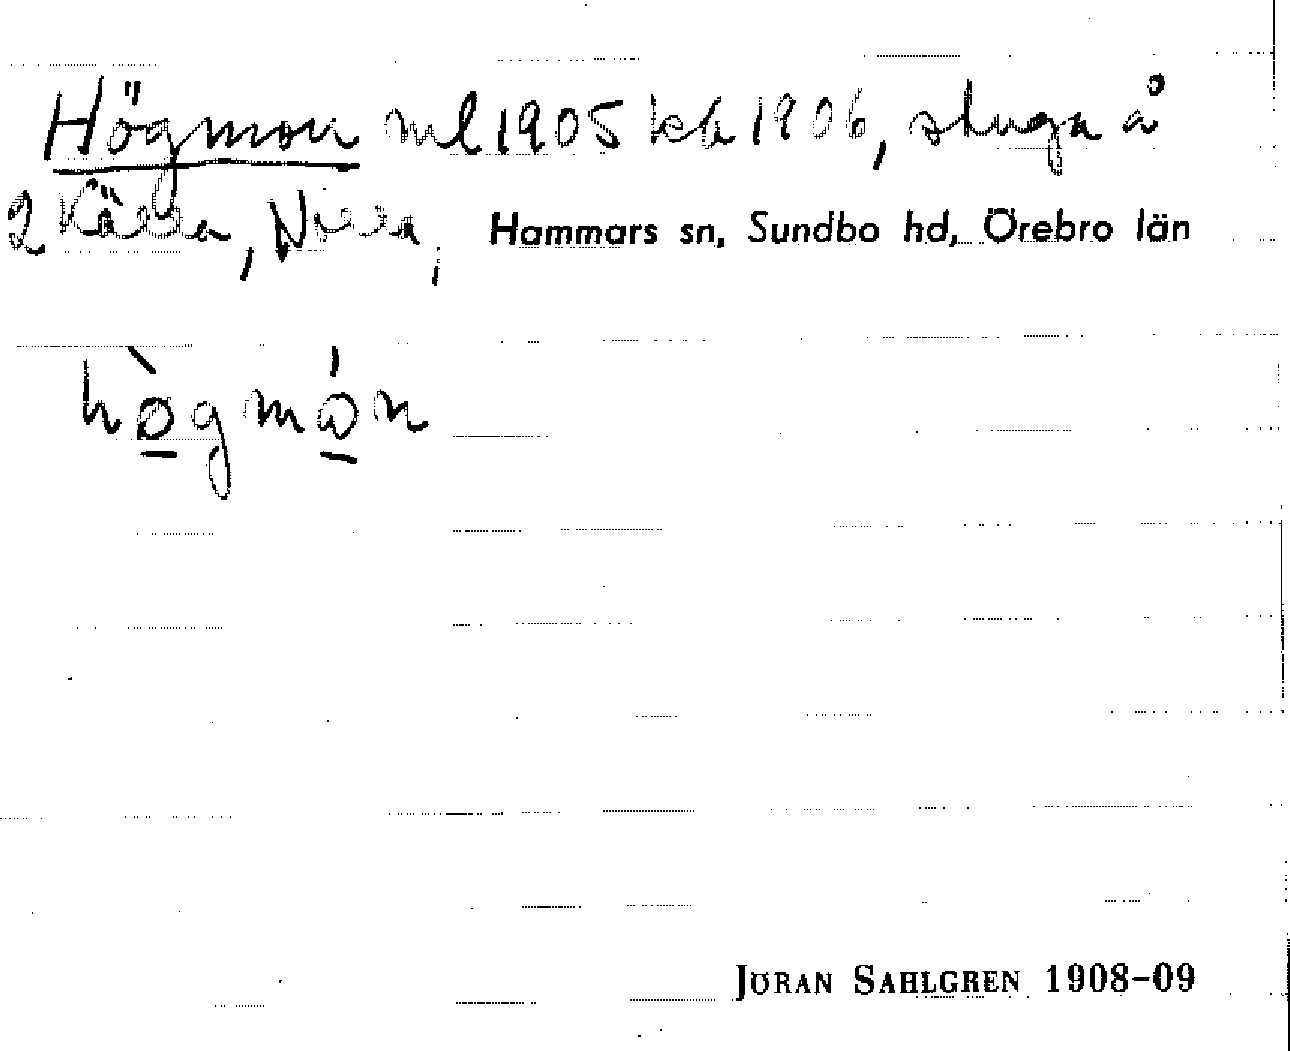 Högmon ml 1905 kb 1906, stuga å
2 Kärra, Norra, Hammars sn, Sundbo hd, Örebro län
hògmón
JÖRAN SAHLGREN 1908-09